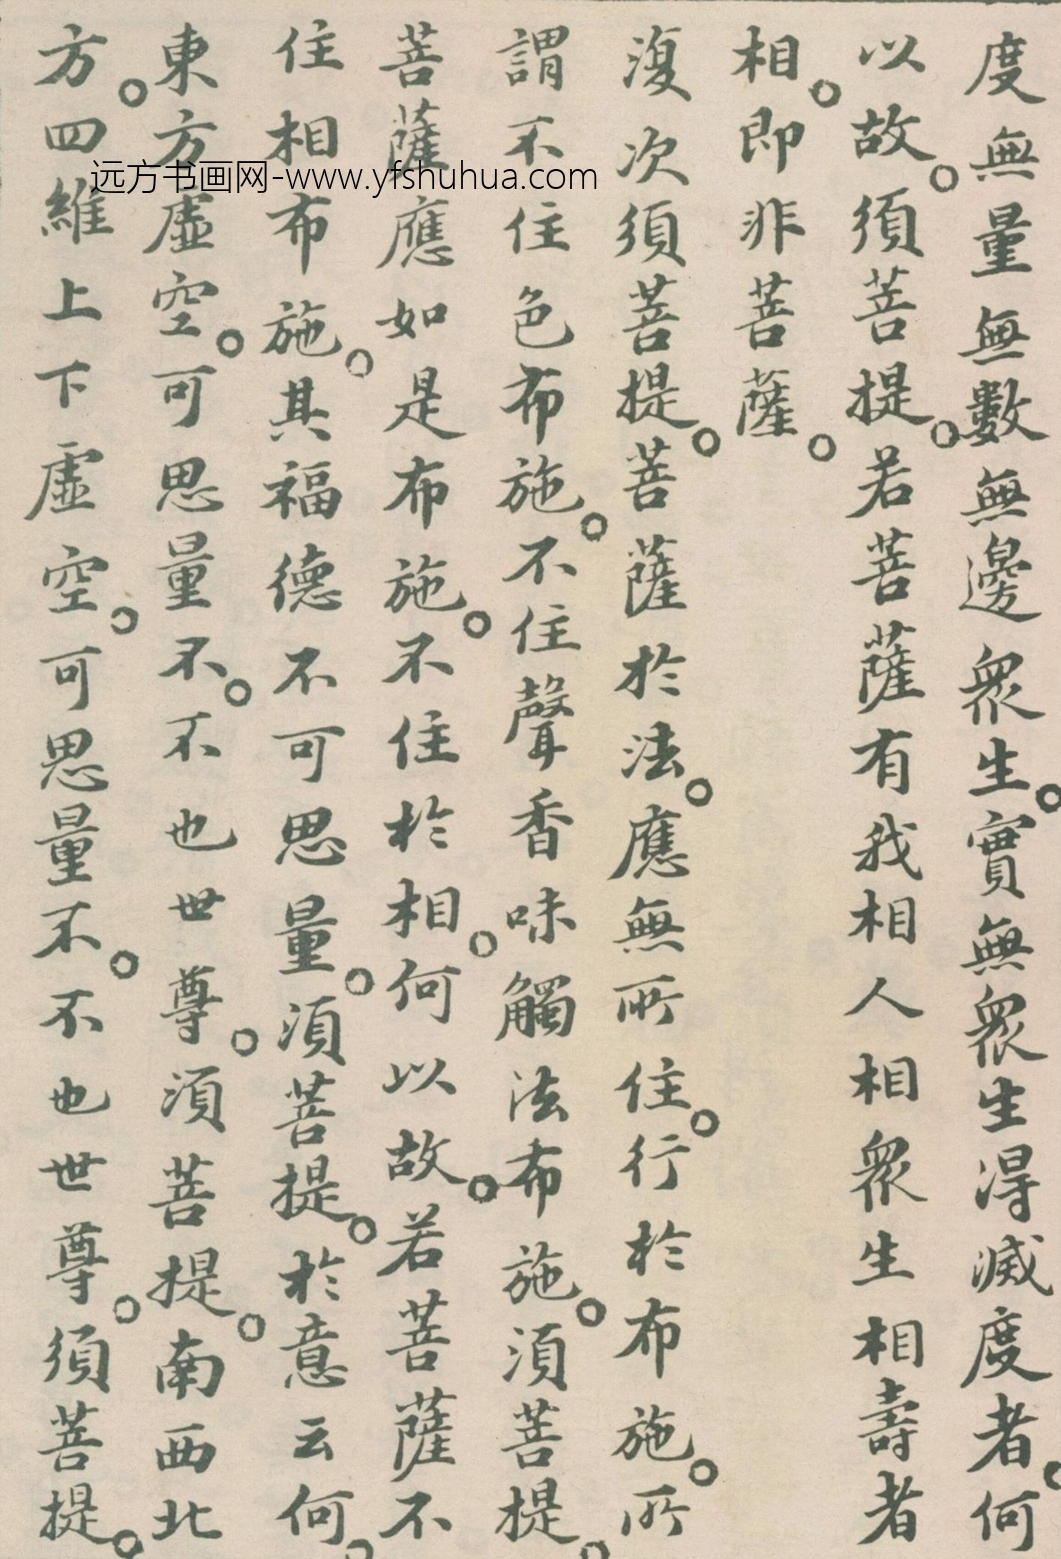 度無量無數無邊眾生。實無眾生得滅度者。何
以故。須菩提。若菩薩有我相人相眾生相壽者
相。即非菩薩。
復次須菩提。菩薩於法。應無所住。行於布施。所
謂不住色布施。不住聲香味觸法布施。須菩提。
菩薩應如是布施。不住於相。何以故。若菩薩不
住相布施。其福德不可思量。須菩提。於意云何。
東方虛空。可思量不。不也世尊。須菩提。南西北
方。四維上下虛空。可思量不。不也世尊。須菩提。
远方书画网-www.yfshuhua.com